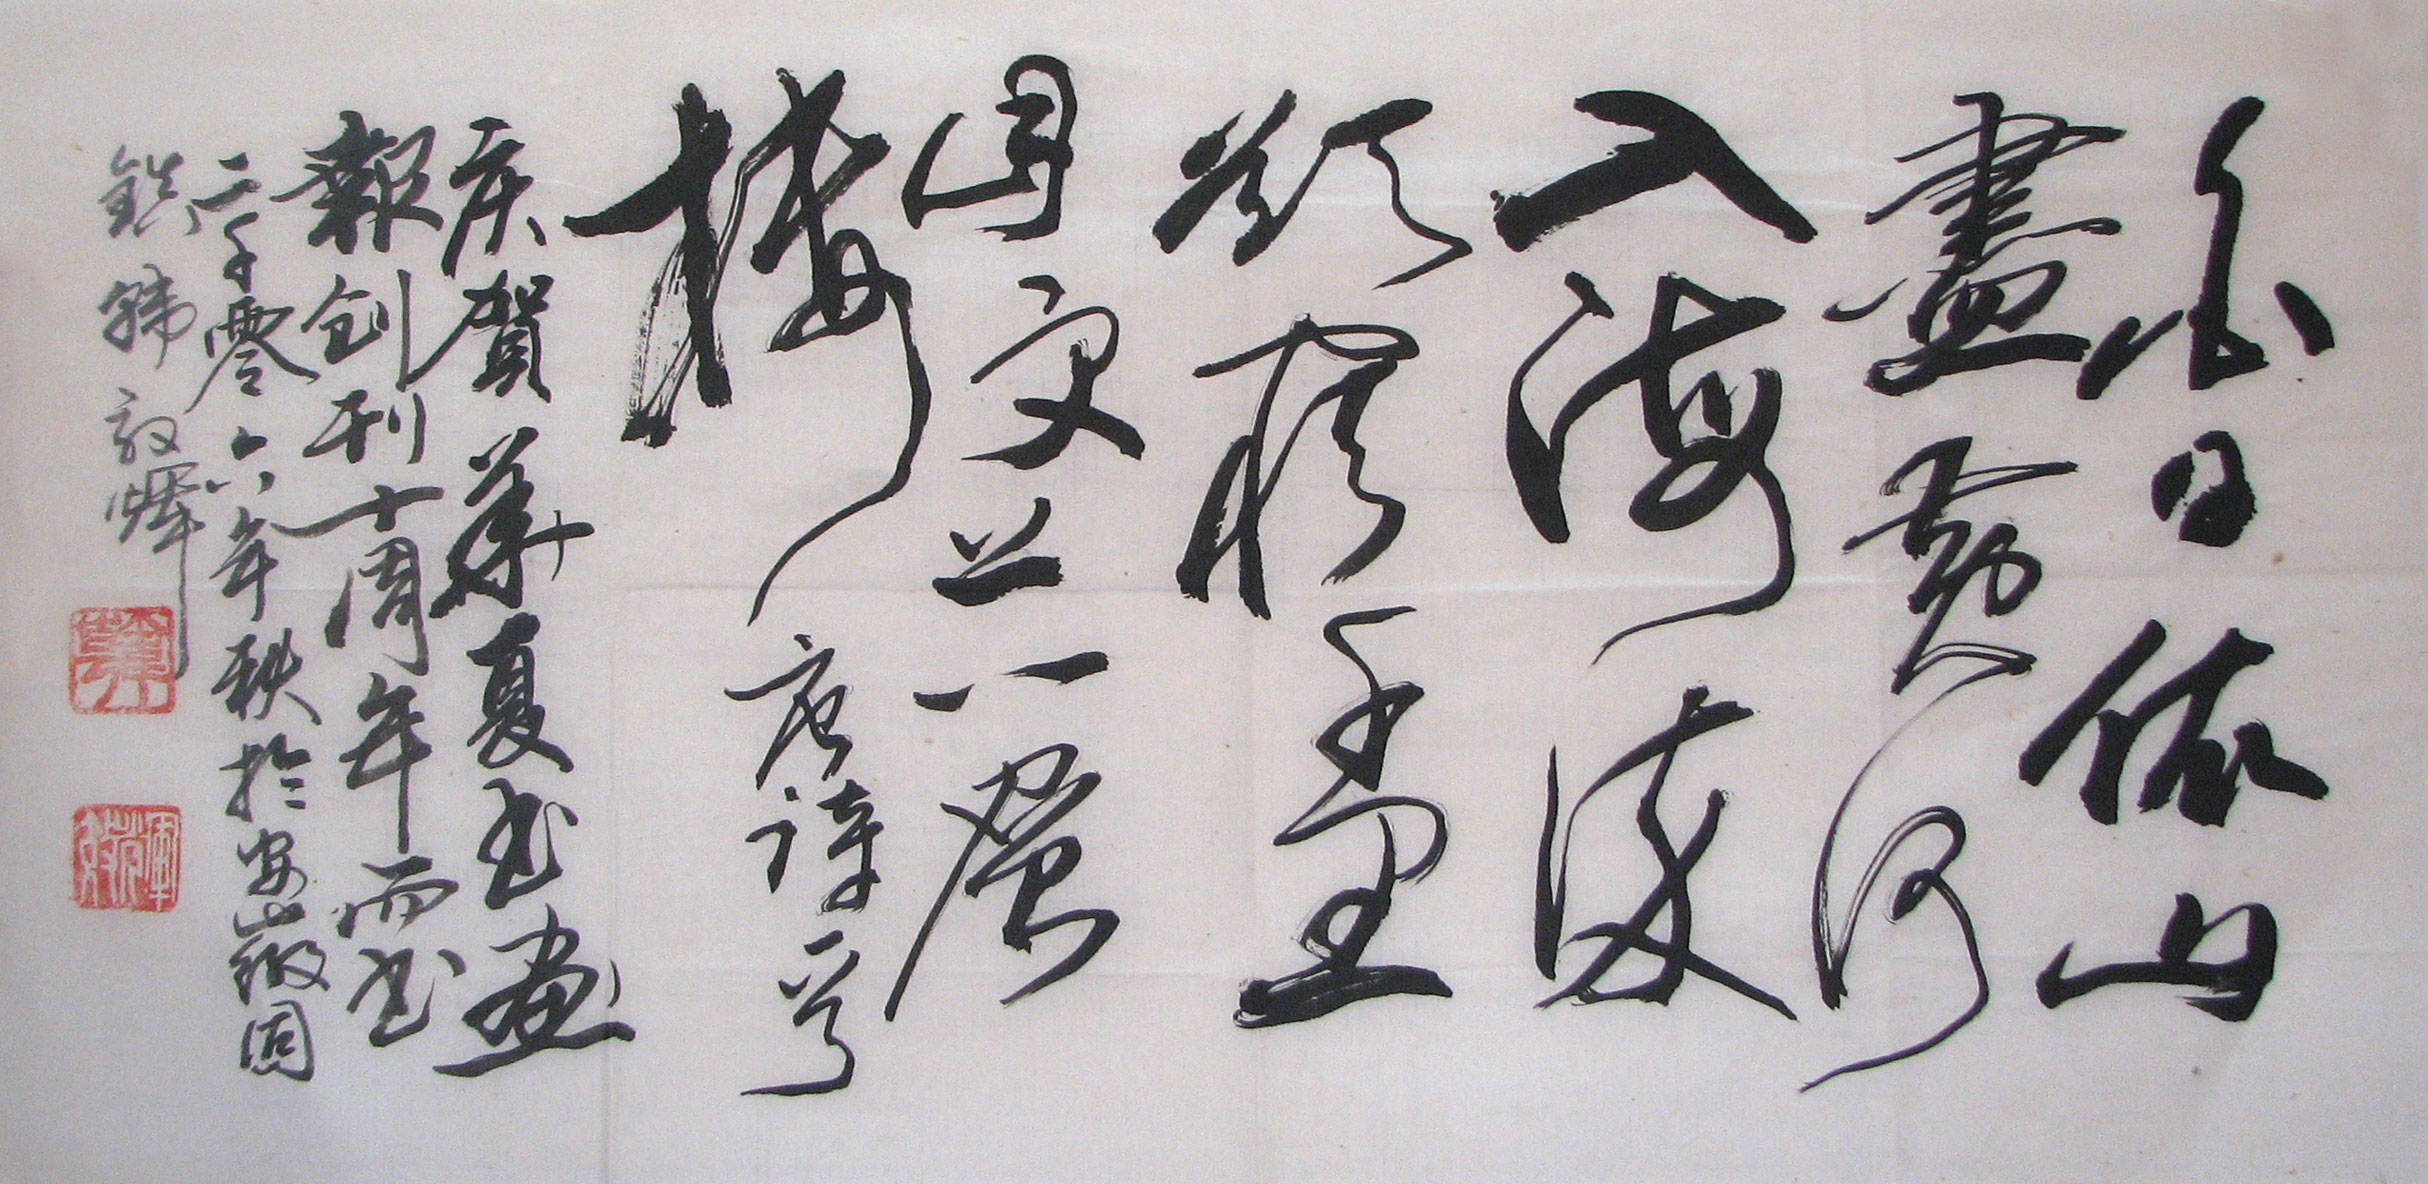 白日依山
盡黄河
入海流
欲窮千里
目更上一層
樓 唐詩一首
庆賀華夏书畫
報创刊十周年而书
二千零六年秋於安徽固
鎮韩敦煇